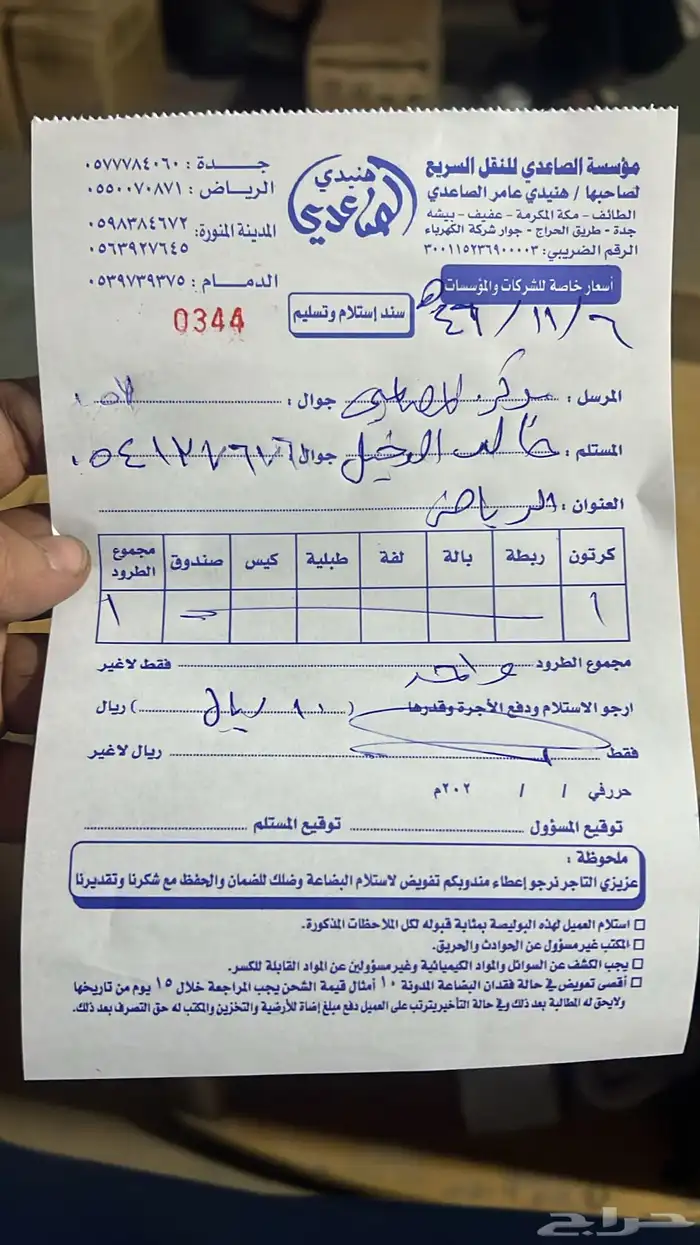 مؤسسة الصاعدي للنقل السريع
لصاحبها / هنيدي عامر الصاعدي
الطائف - مكة المكرمة - عفيف - بيشه
جدة - طريق الحراج - جوار شركة الكهرباء
الرقم الضريبي: ٣٠٠١١٥٢٣٦٩٠٠٠٠٣
أسعار خاصة للشركات والمؤسسات
هنيدي
الصاعدي
جـدة : ٠٥٧٧٧٨٤٠٦٠
الرياض : ٠٥٥٠٠٧٠٨٧١
المدينة المنورة: ٠٥٩٨٣٨٤٦٧٢
٠٥٦٣٩٢٧٦٤٥
الدمـام : ٠٥٣٩٧٣٩٣٧٥
0344
سند إستلام وتسليم
٦ / ١١ / ٤٦
المرسل : مركز جوال :
المستلم : خالد الدخيل جوال
العنوان : الرياض
كرتون ربطة بالة لفة طبلية كيس صندوق مجموع الطرود
١ ١
مجموع الطرود واحد فقط لاغير
ارجو الاستلام ودفع الأجرة وقدرها ( ريال ) ريال
فقط ريال لاغير
حرر في / / ٢٠٢م
توقيع المسؤول توقيع المستلم
ملحوظة :
عزيزي التاجر نرجو إعطاء مندوبكم تفويض لاستلام البضاعة وضلك للضمان والحفظ مع شكرنا وتقديرنا
استلام العميل لهذه البوليصة بمثابة قبوله لكل الملاحظات المذكورة.
المكتب غير مسؤول عن الحوادث والحريق.
يجب الكشف عن السوائل والمواد الكيميائية وغير مسؤولين عن المواد القابلة للكسر.
أقصى تعويض في حالة فقدان البضاعة المدونة ١٠ أمثال قيمة الشحن يجب المراجعة خلال ١٥ يوم من تاريخها
ولايحق له المطالبة بعد ذلك وفي حالة التأخير يترتب على العميل دفع مبلغ إضاة للأرضية والتخزين والمكتب له حق التصرف بعد ذلك.
حراج